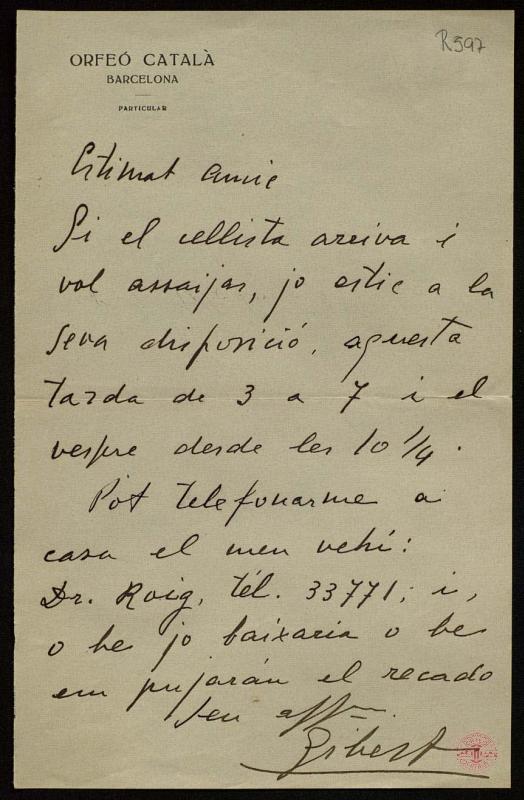 R597
ORFEÓ CATALÀ
BARCELONA
PARTICULAR
Estimat amic
Si el cellista arriva i
vol assaijar, jo estic a la
seva disposició, aquesta
tarda de 3 a 7 i el
vespre desde les 10 1/4.
Pot telefonarme a
casa el meu vehí:
Dr. Roig, tél. 33771; i,
o be jo baixaria o be
em pujarán el recado
Seu affm.
Gibert